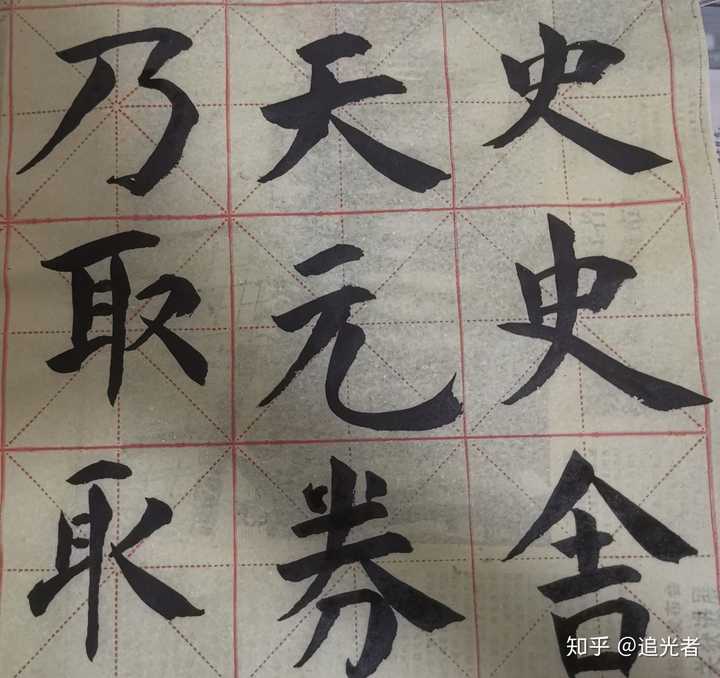 史史舍
天元券
乃取取
知乎 @追光者